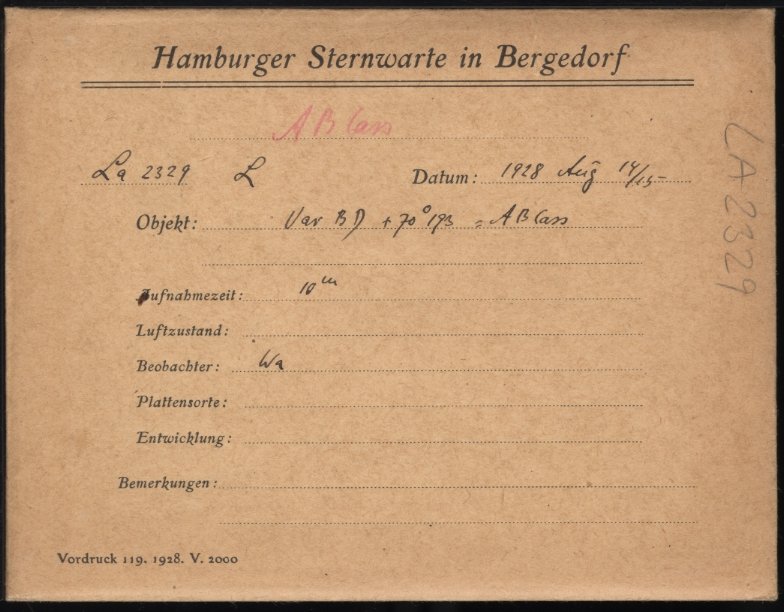 Hamburger Sternwarte in Bergedorf
AB Cass
La 2329 L Datum: 1928 Aug 14/15
Objekt: Var BD +70° 193 = AB Cass
Aufnahmezeit: 10m
Luftzustand:
Beobachter: Wa
Plattensorte:
Entwicklung:
Bemerkungen:
Vordruck 119. 1928. V. 2000
LA 2329